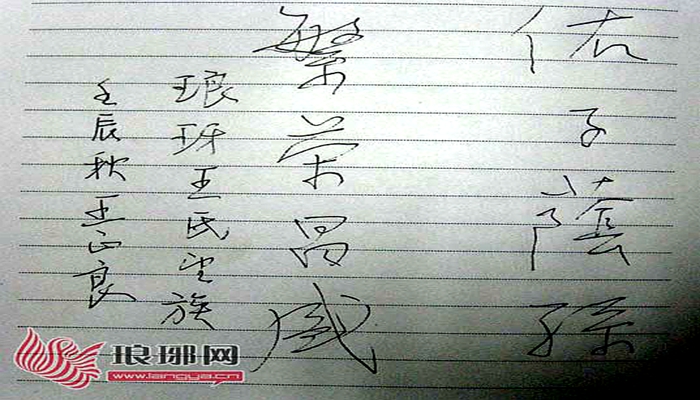 佑子蔭孫
繁荣昌盛
琅玡王氏望族
壬辰秋 王正良
琅琊网
www.langya.cn